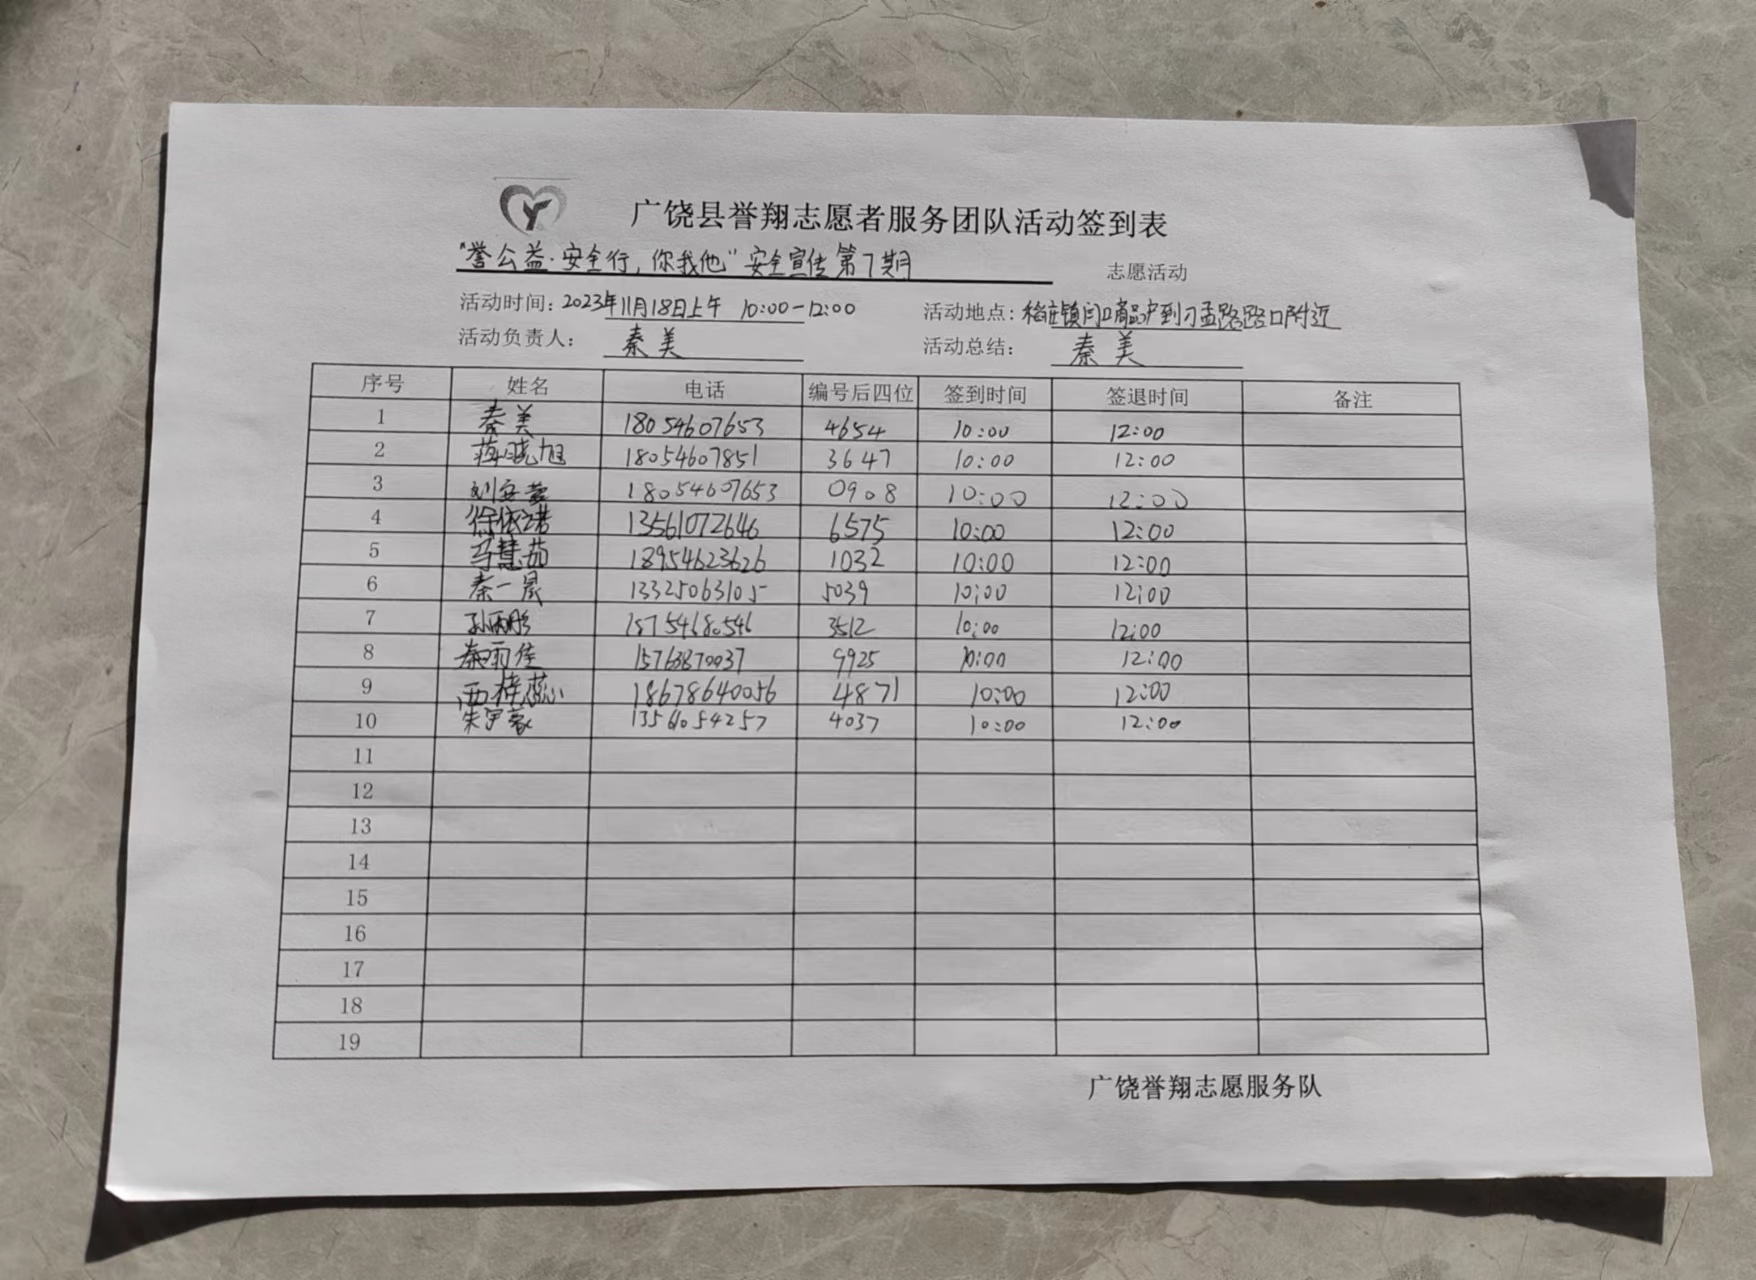 广饶县誉翔志愿者服务团队活动签到表
"誉公益·安全行,你我他"安全宣传第7期 志愿活动
活动时间:2023年11月18日上午 10:00-12:00 活动地点:稻庄镇门口商品户到刁孟路路口附近
活动负责人: 秦美 活动总结: 秦美
序号 姓名 电话 编号后四位 签到时间 签退时间 备注
1 秦美 18054607653 4654 10:00 12:00
2 蒋晓旭 18054607851 3647 10:00 12:00
3 18054607653 0908 10:00 12:00
4 徐依诺 13561072646 6575 10:00 12:00
5 马慧茹 18954623626 1032 10:00 12:00
6 秦一晨 13325063105 5039 10:00 12:00
7 孙雨彤 15754680546 3512 10:00 12:00
8 秦雨佳 15763870037 9925 10:00 12:00
9 西梓蕊 18678640056 4871 10:00 12:00
10 朱宇豪 13561054257 4037 10:00 12:00
11
12
13
14
15
16
17
18
19
广饶誉翔志愿服务队